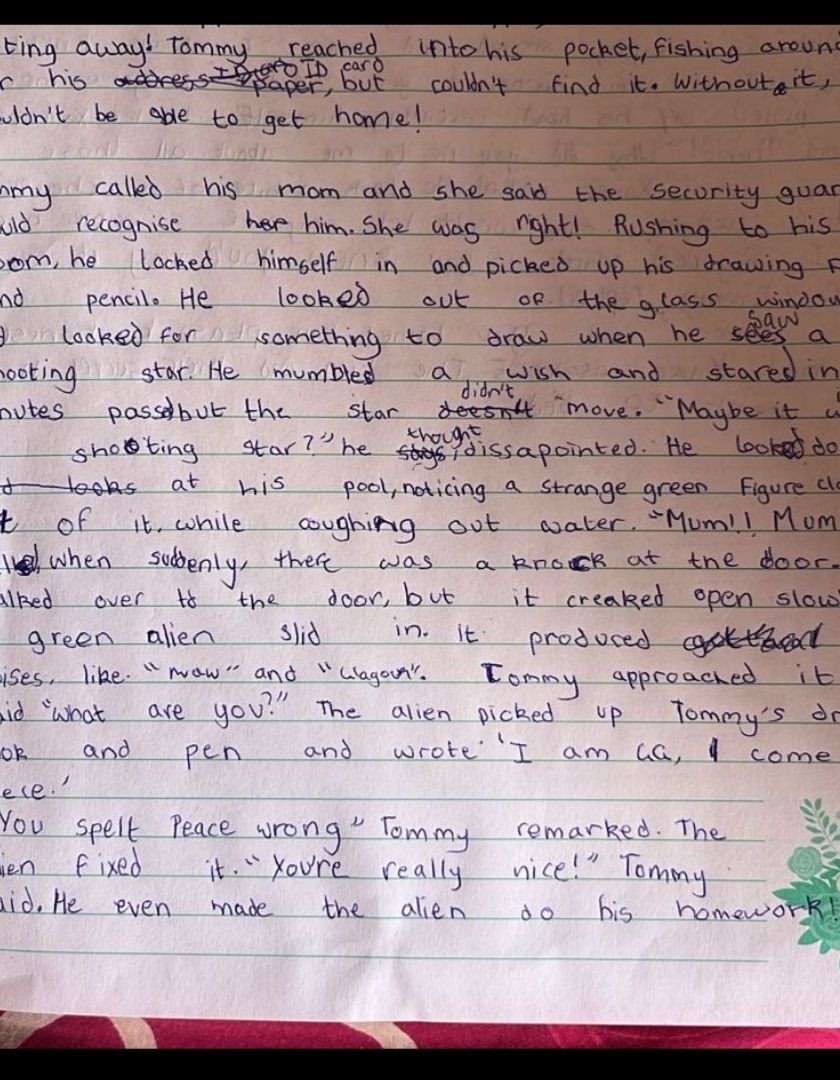 ting away! Tommy reached into his pocket, fishing around
r his address ID card paper, but couldn't find it. Without it,
uldn't be able to get home!
mmy called his mom and she said the security guar
uld recognise her him. She was right! Rushing to his
oom, he locked himself in and picked up his drawing
nd pencil. He looked out of the glass window
looked for something to draw when he sees saw a
hooting star. He mumbled a wish and stared in
nutes passed but the star doesn't didn't move. "Maybe it
shooting star?" he says thought, dissapointed. He looked do
looks at his pool, noticing a strange green figure cl
t of it, while coughing out water. "Mum!! Mum
when suddenly, there was a knock at the door.
alked over to the door, but it creaked open slow
green alien slid in. It produced
ises, like "maw" and "Wagour". Tommy approached it
id "what are you?" The alien picked up Tommy's dr
ok and pen and wrote 'I am GG, I come
ece.'
You spelt Peace wrong" Tommy remarked. The
ien fixed it. "You're really nice!" Tommy
aid. He even made the alien do his homework!